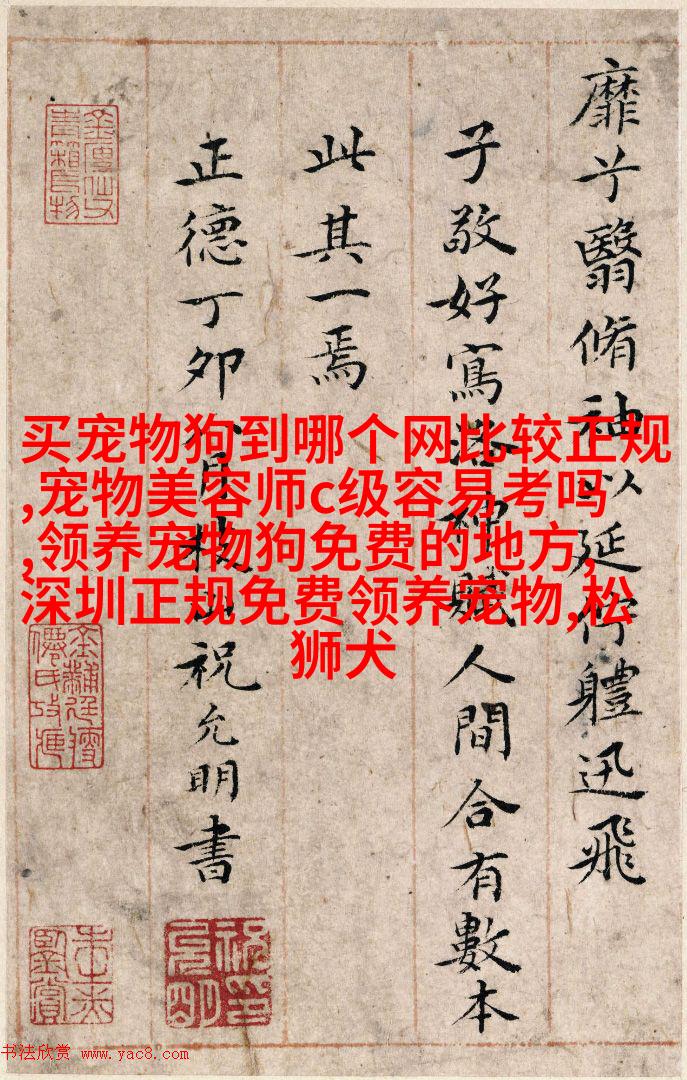 靡兮翳脩袖以延佇體迅飛
子敬好寫洛神賦人間合有數本
此其一焉
正德丁卯八月枝山祝允明書
买宠物狗到哪个网比较正规
,宠物美容师c级容易考吗
,领养宠物狗免费的地方,
深圳正规免费领养宠物,松
狮犬
书法欣赏 www.yac8.com